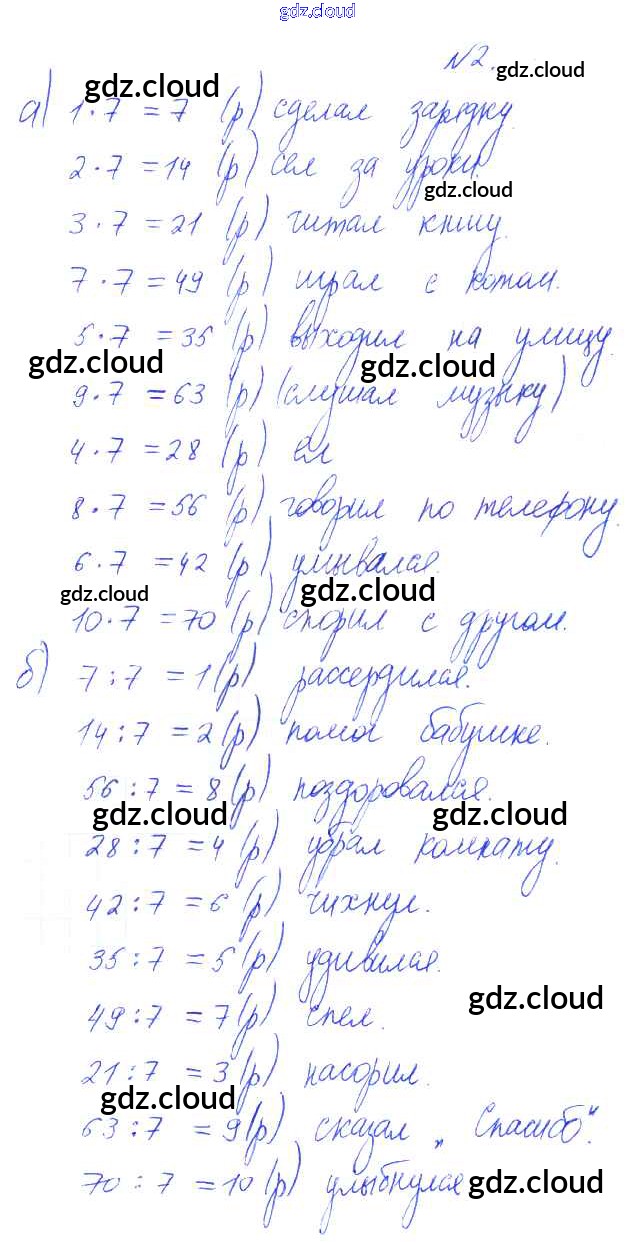 gdz.cloud
№2. gdz.cloud
gdz.cloud
а) 1·7 = 7 (р) сделал зарядку.
2·7 = 14 (р) сел за уроки.
gdz.cloud
3·7 = 21 (р) читал книгу.
7·7 = 49 (р) играл с котом.
5·7 = 35 (р) выходил на улицу.
gdz.cloud gdz.cloud
9·7 = 63 (р) (слушал музыку)
4·7 = 28 (р) ел
8·7 = 56 (р) говорил по телефону.
6·7 = 42 (р) умывался.
gdz.cloud gdz.cloud
10·7 = 70 (р) спорил с другом.
б) 7:7 = 1 (р) рассердился.
14:7 = 2 (р) помог бабушке.
56:7 = 8 (р) поздоровался.
gdz.cloud gdz.cloud
28:7 = 4 (р) убрал комнату.
42:7 = 6 (р) чихнул.
35:7 = 5 (р) удивился.
gdz.cloud
49:7 = 7 (р) спел.
21:7 = 3 (р) насорил.
gdz.cloud
63:7 = 9 (р) сказал „Спасибо“.
70:7 = 10 (р) улыбнулся gdz.cloud